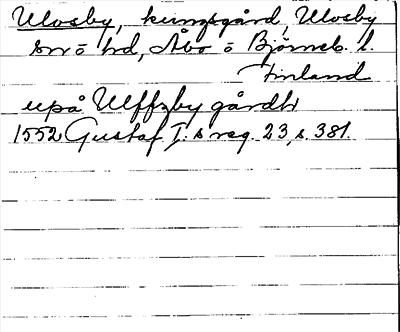 Ulvsby, kungsgård, Ulvsby
sn o hd, Åbo o Björneb. l.
Finland
upå Ulffzby gårdh
1552 Gustaf I:s reg. 23, s. 381.